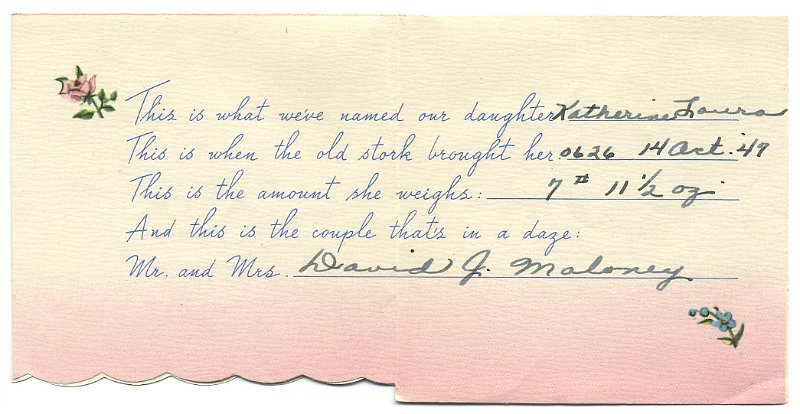 This is what we've named our daughter Katherine Laura
This is when the old stork brought her 0626 14 Oct. 47
This is the amount she weighs: 7 # 11 1/2 oz.
And this is the couple that's in a daze:
Mr. and Mrs. David J. Maloney